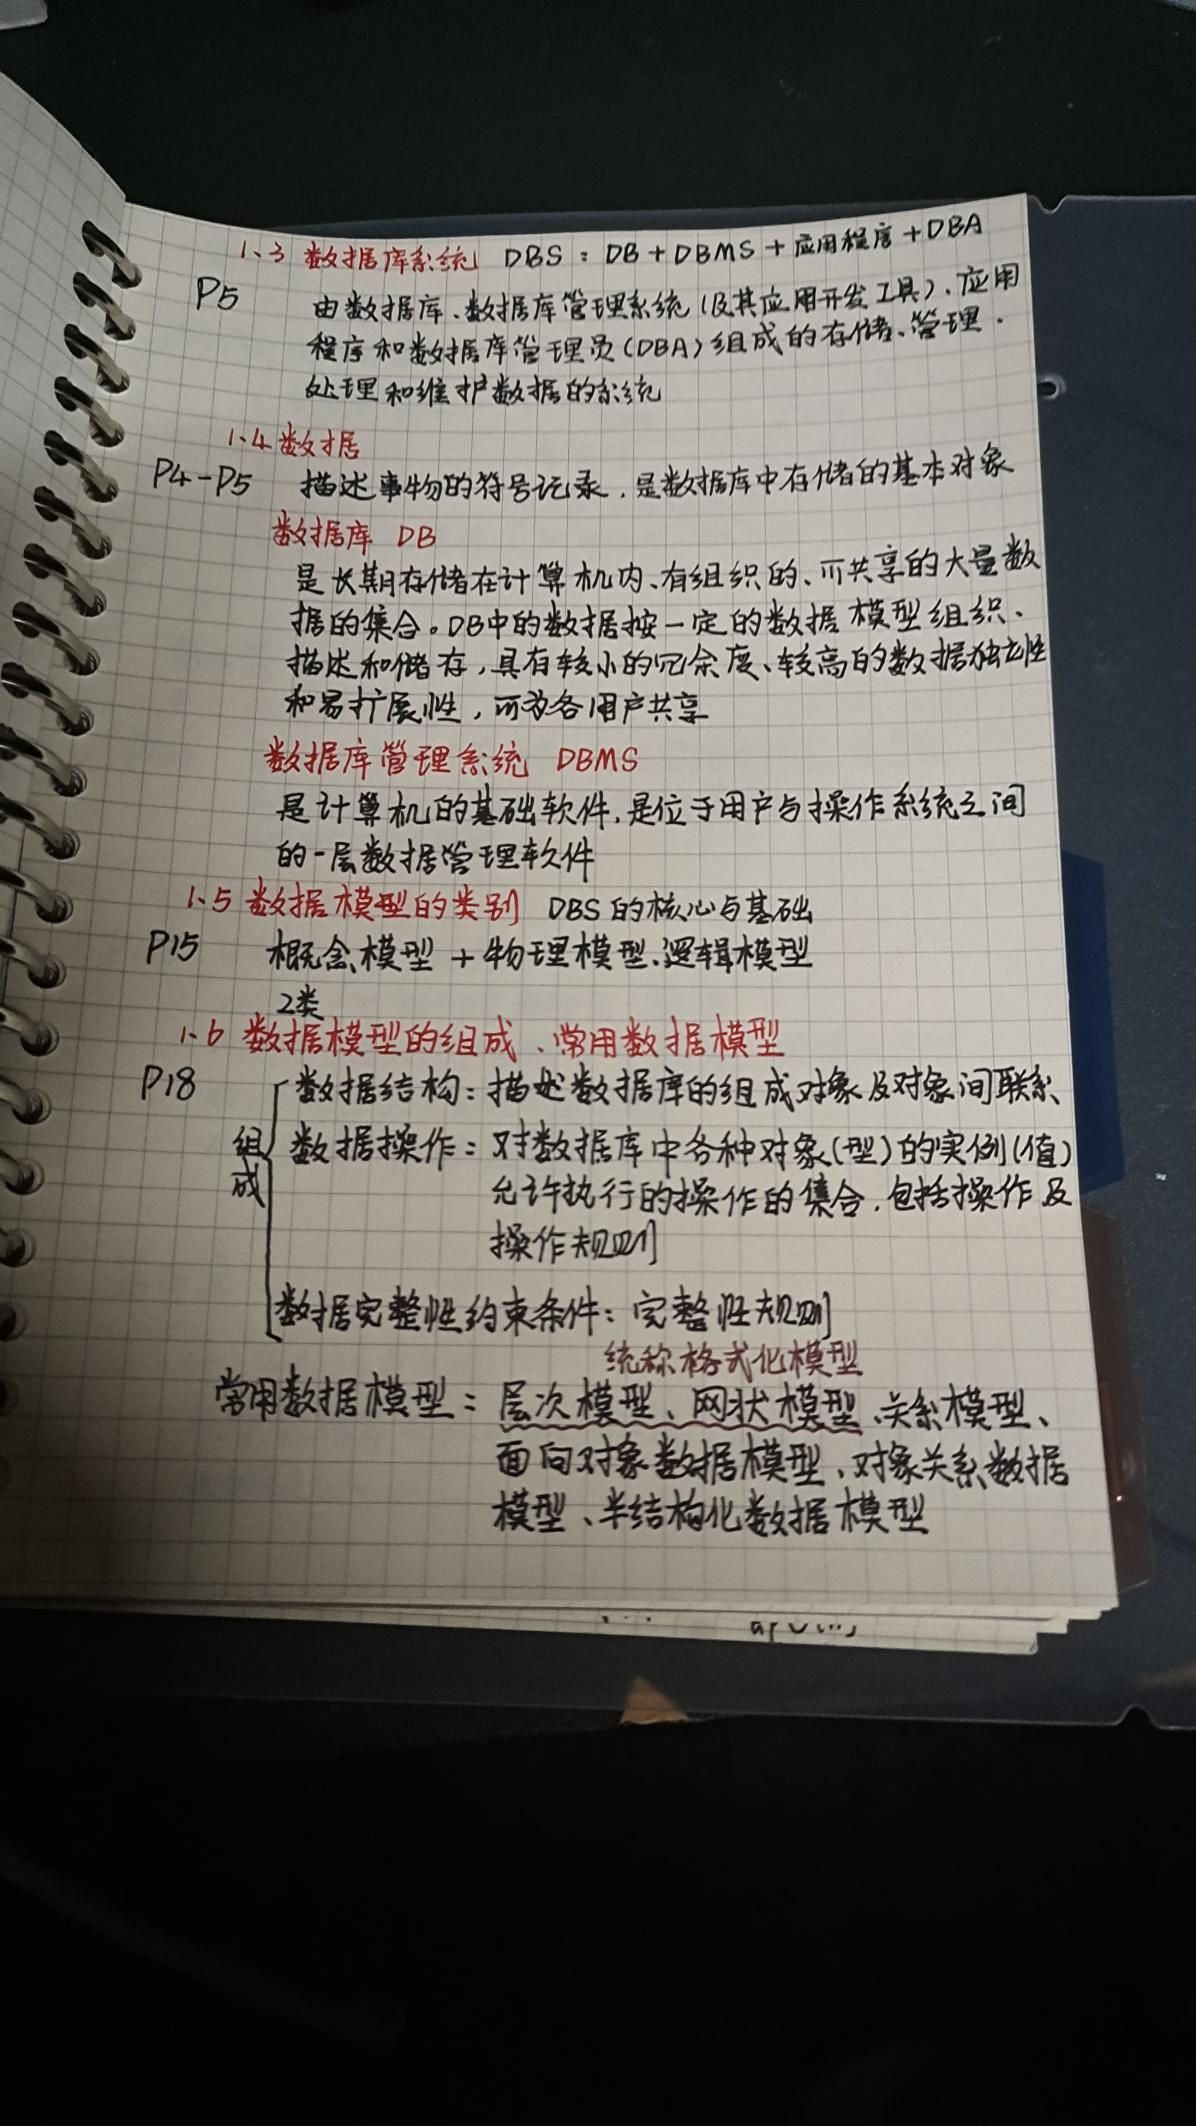 1.3 数据库系统 DBS：DB+DBMS+应用程序+DBA
P5 由数据库、数据库管理系统(及其应用开发工具)、应用
程序和数据库管理员(DBA)组成的存储、管理、
处理和维护数据的系统
1.4 数据
P4-P5 描述事物的符号记录，是数据库中存储的基本对象
数据库 DB
是长期存储在计算机内、有组织的、可共享的大量数
据的集合。DB中的数据按一定的数据模型组织、
描述和储存，具有较小的冗余度、较高的数据独立性
和易扩展性，可为各用户共享
数据库管理系统 DBMS
是计算机的基础软件，是位于用户与操作系统之间
的一层数据管理软件
1.5 数据模型的类别 DBS的核心与基础
P15 概念模型 + 物理模型、逻辑模型
2类
1.6 数据模型的组成、常用数据模型
P18 数据结构：描述数据库的组成对象及对象间联系
组成 数据操作：对数据库中各种对象(型)的实例(值)
允许执行的操作的集合，包括操作及
操作规则
数据完整性约束条件：完整性规则
统称格式化模型
常用数据模型：层次模型、网状模型、关系模型、
面向对象数据模型、对象关系数据
模型、半结构化数据模型